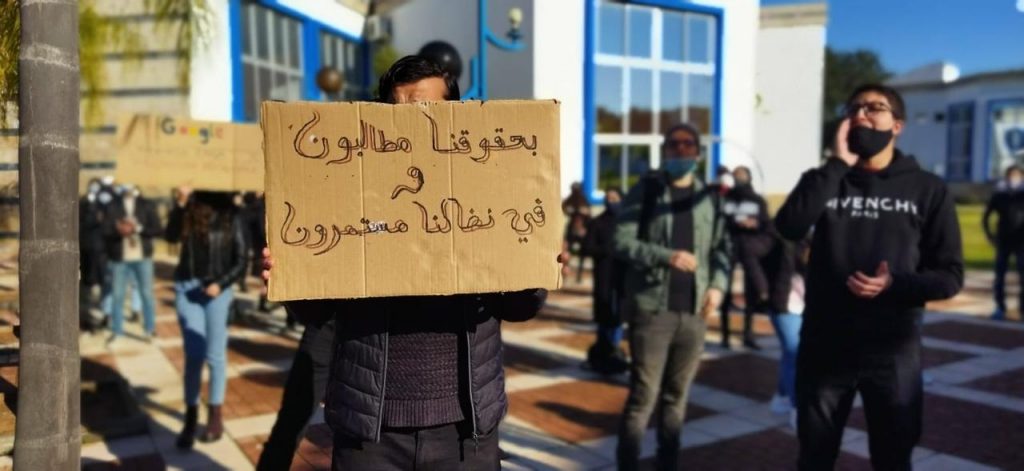 Google
بحقوقنا مطالبون
و
في نضالنا مستمرون
GIVENCHY
PARIS